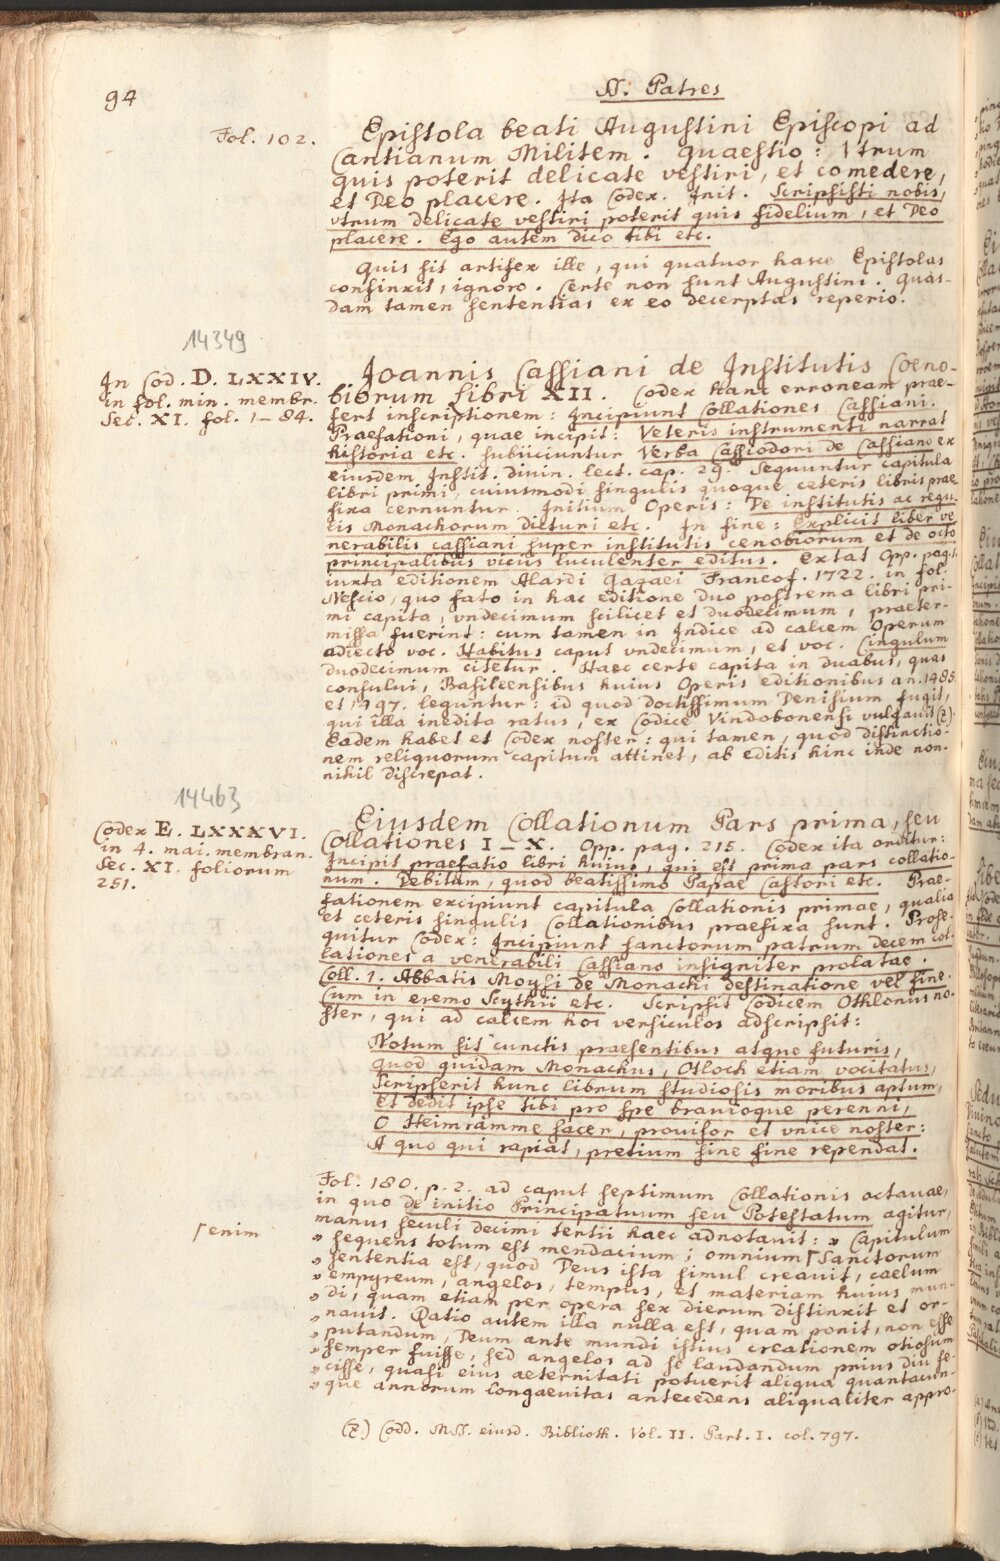 94
SS. Patres
Fol. 102.
Epistola beati Augustini Episcopi ad
Cantianum Militem. Quaestio: Vtrum
quis poterit delicate vestiri, et comedere,
et Deo placere. Ita Codex. Init. Scripsisti nobis,
vtrum delicate vestiri poterit quis fidelium, et Deo
placere. Ego autem dico tibi etc.
Quis sit artifex ille, qui quatuor hasce Epistolas
confinxit, ignoro. Certe non sunt Augustini. Quas-
dam tamen sententias ex eo decerptas reperio.
14349
In Cod. D. LXXIV.
in fol. min. membr.
Sec. XI. fol. 1–84.
Joannis Cassiani de Institutis Coeno-
biorum libri XII. Codex hanc erroneam prae-
fert inscriptionem: Incipiunt Collationes Cassiani.
Praefationi, quae incipit: Veteris instrumenti narrat
historia etc. subiiciuntur Verba Cassiodori de Cassiano ex
eiusdem Instit. divin. lect. cap. 29. Sequuntur capitula
libri primi, cuiusmodi singulis quoque ceteris libris prae
fixa cernuntur. Initium Operis: De institutis ac regu-
lis Monachorum dicturi etc. In fine: Explicit liber ve
nerabilis cassiani super institutis cenobiorum et de octo
principalibus viciis luculenter editus. Extat Opp. pag. 1.
iuxta editionem Alardi Gazaei Francof. 1722. in fol.
Nescio, quo fato in hac editione duo postrema libri pri-
mi capita, vndecimum scilicet et duodecimum, praeter-
missa fuerint: cum tamen in Indice ad calcem Operum
adiecto voc. Habitus caput vndecimum, et voc. Cingulum
duodecimum citetur. Haec certe capita in duabus, quas
consului, Basileensibus huius Operis editionibus an. 1485
et 1497. leguntur: id quod doctissimum Denisium fugit,
qui illa inedita ratus, ex Codice Vindobonensi vulgauit (z).
Eadem habet et Codex noster: qui tamen, quod distinctio-
nem reliquorum capitum attinet, ab editis hinc inde non-
nihil discrepat.
14463
Codex E. LXXXVI.
in 4. mai. membran.
Sec. XI. foliorum
251.
Eiusdem Collationum Pars prima, seu
Collationes I–X. Opp. pag. 215. Codex ita orditur:
Incipit praefatio libri huius, qui est prima pars collatio-
num. Debitum, quod beatissimo Papae Castori etc. Prae-
fationem excipiunt capitula Collationis primae, qualia
et ceteris singulis Collationibus praefixa sunt. Prose-
quitur Codex: Incipiunt sanctorum patrum decem col-
lationes a venerabili Cassiano insigniter prolatae.
Coll. 1. Abbatis Moysi de Monachi destinatione vel fine.
Cum in eremo Scythii etc. Scripsit Codicem Othlonus no-
ster, qui ad calcem hos versiculos adscripsit:
Notum sit cunctis praesentibus atque futuris,
quod quidam Monachus, Otloch etiam vocitatus,
Scripserit hunc librum studiosis moribus aptum,
Et dedit ipse tibi pro spe brauioque perenni,
O Heimramme sacer, prouisor et vnice noster:
A quo qui rapiat, pretium sine fine rependat.
Fol. 180. p. 2. ad caput septimum Collationis octauae,
in quo de initio Principatuum seu Potestatum agitur,
manus seculi decimi tertii haec adnotauit: „Capitulum
⌈enim
„sequens totum est mendacium; omnium ⌈Sanctorum
„sententia est, quod Deus ista simul creauit, caelum
„empyreum, angelos, tempus, et materiam huius mun-
„di, quam etiam per opera sex dierum distinxit et or-
„nauit. Ratio autem illa nulla est, quam ponit, non esse
„putandum, Deum ante mundi istius creationem otiosum
„semper fuisse, sed angelos ad se laudandum prius diu fe-
„cisse, quasi eius aeternitati potuerit aliqua quantacun-
„que annorum longaeuitas antecedens aliqualiter appro-
(z) Codd. MSS. eiusd. Biblioth. Vol. II. Part. I. col. 797.